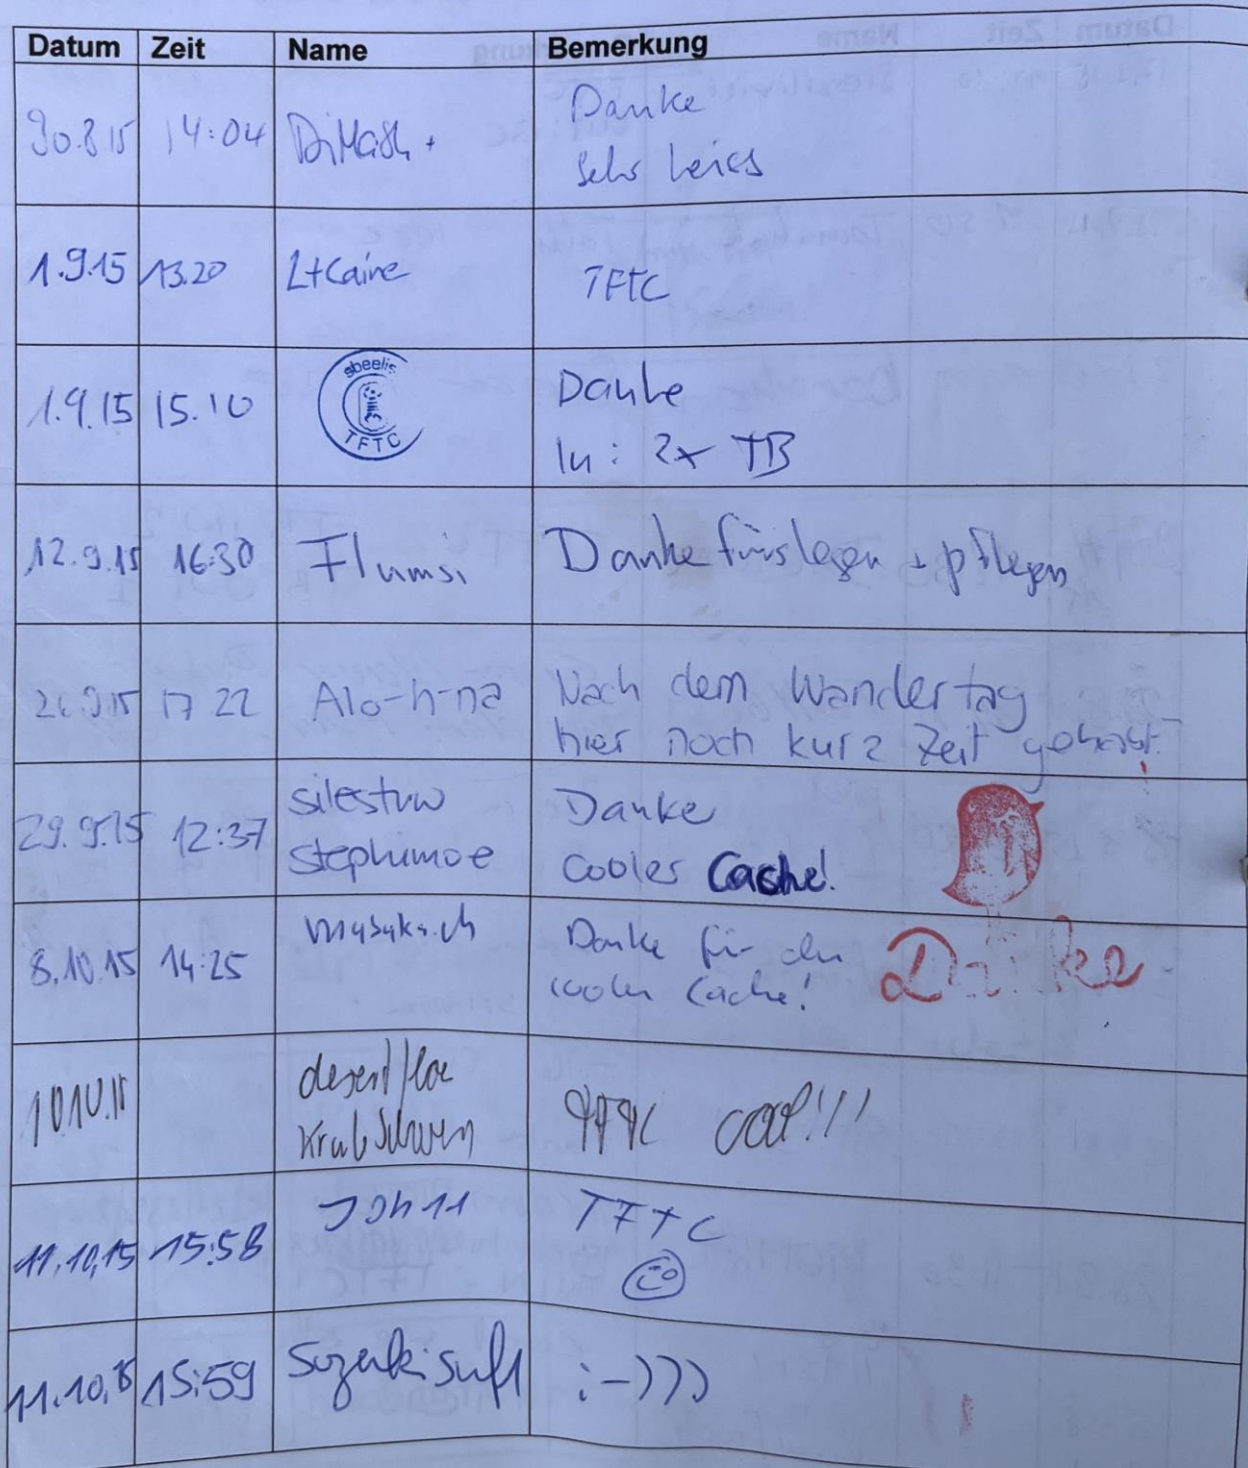 Datum Zeit Name Bemerkung
30.8.15 14:04 DiMash + Danke
sehr heiss
1.9.15 13.20 LtCaine TFTC
1.9.15 15.10 sbeelis Danke
TFTC In: 2x TB
12.9.15 16:30 Flumsi Danke fürs legen + pflegen
17 22 Alo-h-na Nach dem Wandertag
hier noch kurz Zeit gehabt!
29.9.15 12:37 silestuw Danke
stephumoe cooler Cache!
8.10.15 14:25 Danke für den
coolen Cache! Danke
10.10.15 TFTC cool!!!
11.10.15 15:58 Joh11 TFTC
11.10.15 15:59 :-)))